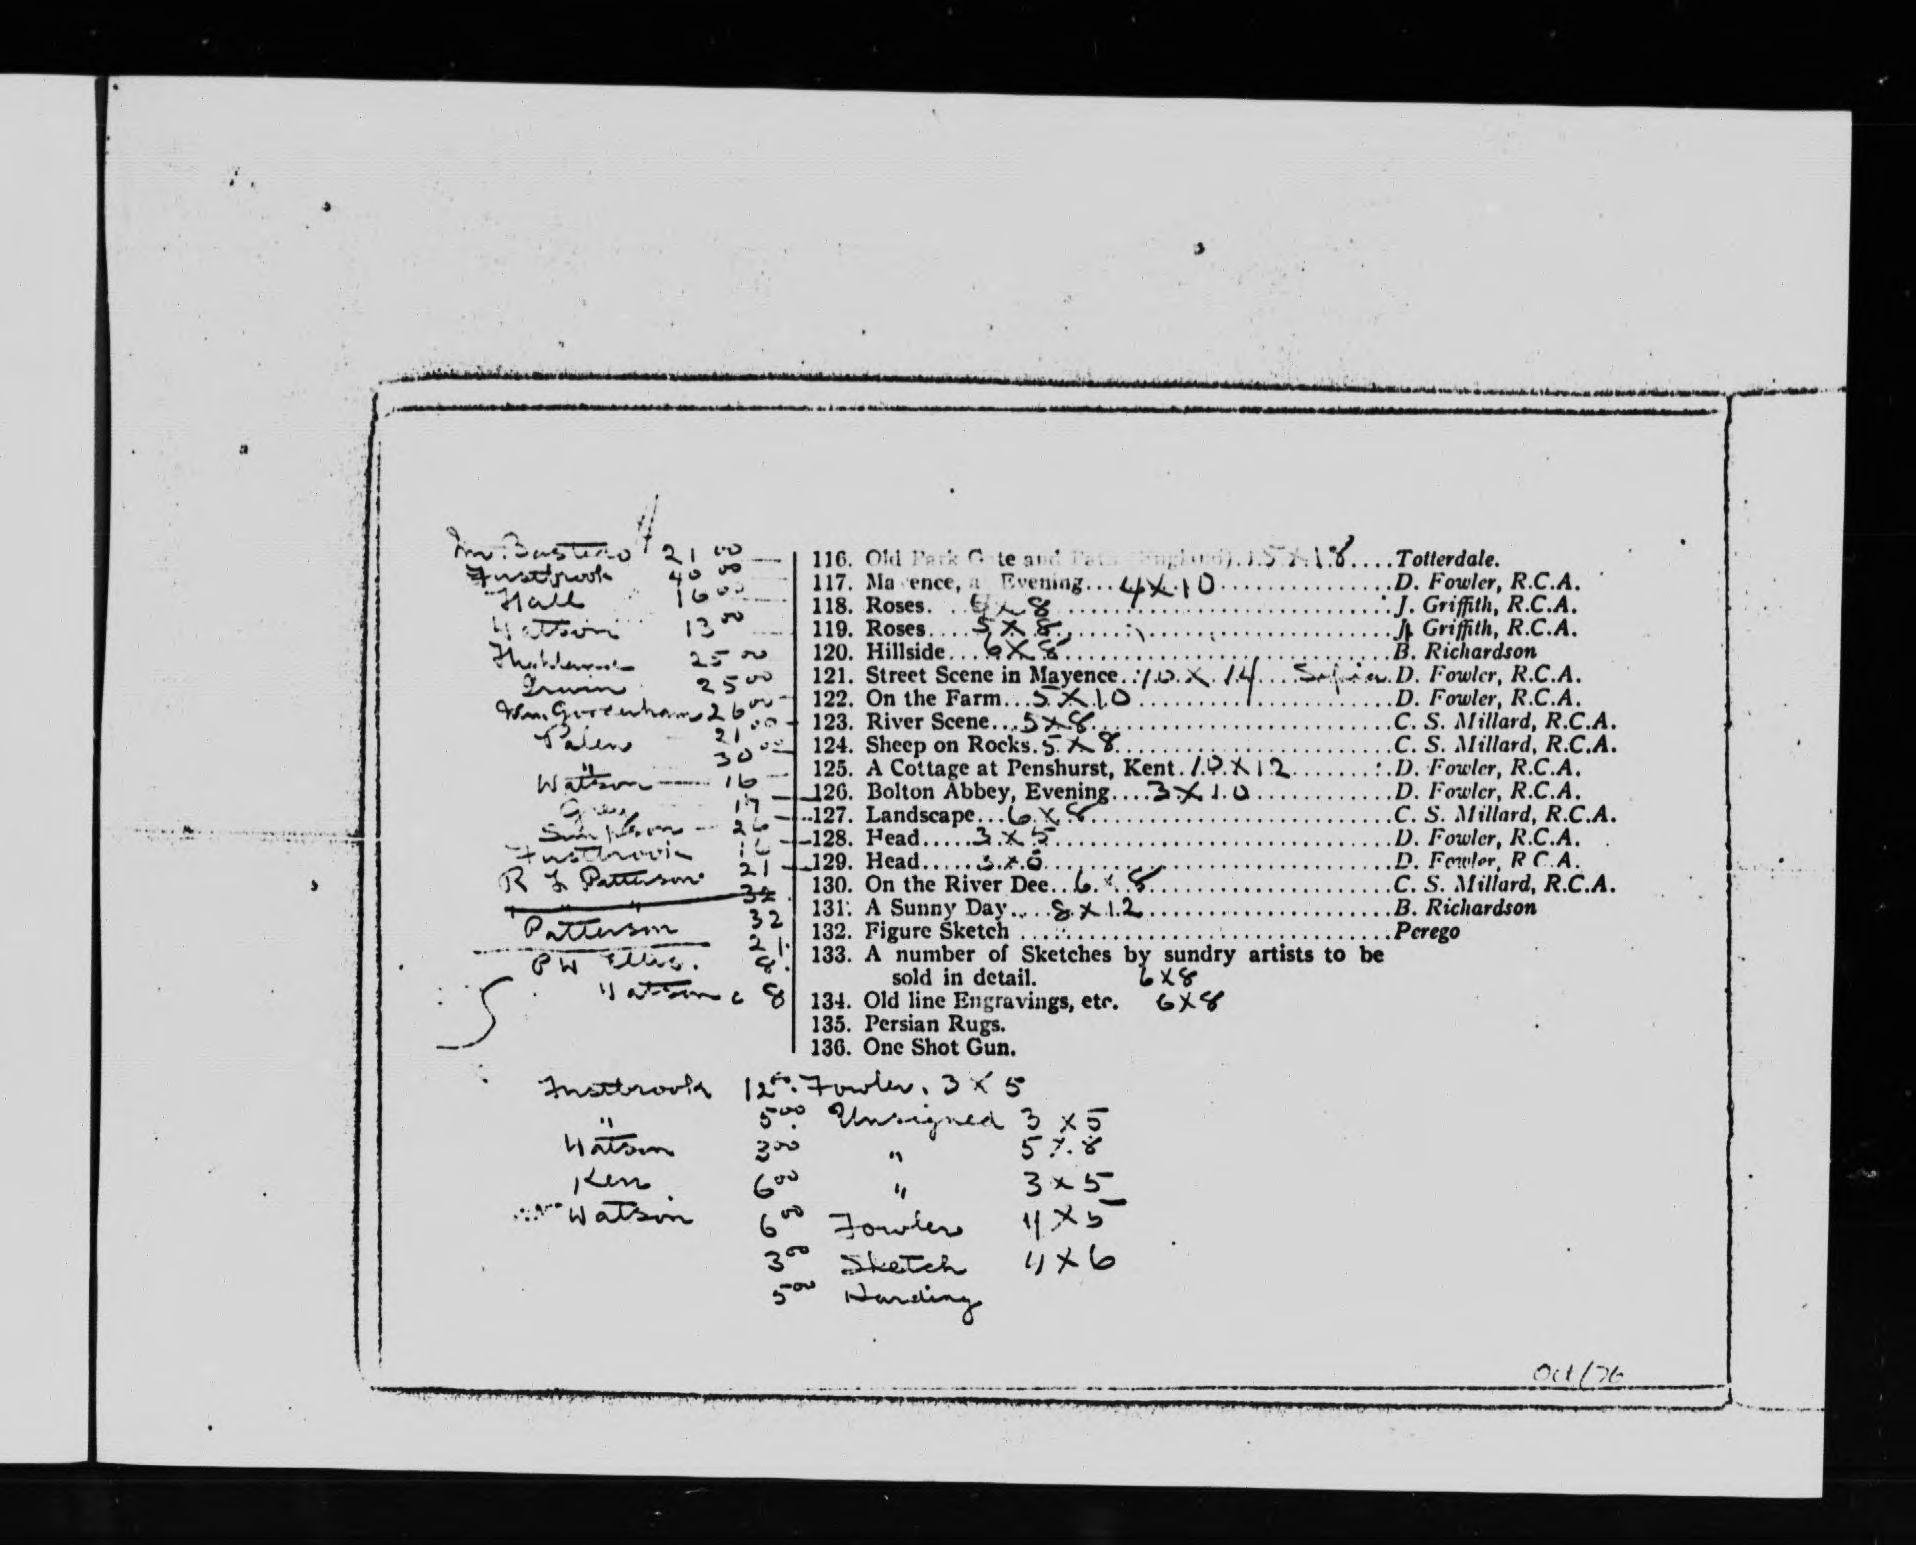 Mr. Bastedo 21 00 116. Old Park Gate and (England). 15 X 18 .... Totterdale.
Fustbrook 40 00 117. Ma ence, a Evening... 4 X 10 ............... D. Fowler, R.C.A.
Hall 16 00 118. Roses. 5 x 8 ............... J. Griffith, R.C.A.
Watson 13 00 119. Roses.... 5 X 8 ............... J. Griffith, R.C.A.
25 00 120. Hillside.... 6 X 8 ............... B. Richardson
Irwin 25 00 121. Street Scene in Mayence.. 10 X 14 .... Sepia D. Fowler, R.C.A.
Wm. Gooderham 26 00 122. On the Farm... 5 X 10 ............... D. Fowler, R.C.A.
Palen 21 00 123. River Scene... 5 x 8 ............... C. S. Millard, R.C.A.
" 30 00 124. Sheep on Rocks. 5 X 8 ............... C. S. Millard, R.C.A.
Watson 16 125. A Cottage at Penshurst, Kent. 10 X 12 ........ D. Fowler, R.C.A.
17 126. Bolton Abbey, Evening.... 3 X 10 ............ D. Fowler, R.C.A.
Simpson 26 127. Landscape... 6 X 8 ............... C. S. Millard, R.C.A.
Fustbrook 16 128. Head..... 3 X 5 ............... D. Fowler, R.C.A.
R L Patterson 21 129. Head...... 3 x 6 ............... D. Fowler, R.C.A.
" " " 32 130. On the River Dee.. 6 x 8 ............... C. S. Millard, R.C.A.
Patterson 32 131. A Sunny Day.... 8 X 12 ............... B. Richardson
21. 132. Figure Sketch ............... Perego
P W Ellis. 8. 133. A number of Sketches by sundry artists to be
sold in detail. 6 X 8
Watson 8 134. Old line Engravings, etc. 6 X 8
135. Persian Rugs.
136. One Shot Gun.
Fustbrook 12 00. Fowler. 3 X 5
" 5 00 Unsigned 3 X 5
Watson 3 00 " 5 X 8
Ken 6 00 " 3 x 5
Watson 6 00 Fowler 4 X 5
3 00 Sketch 4 X 6
5 00 Harding
Oct/76